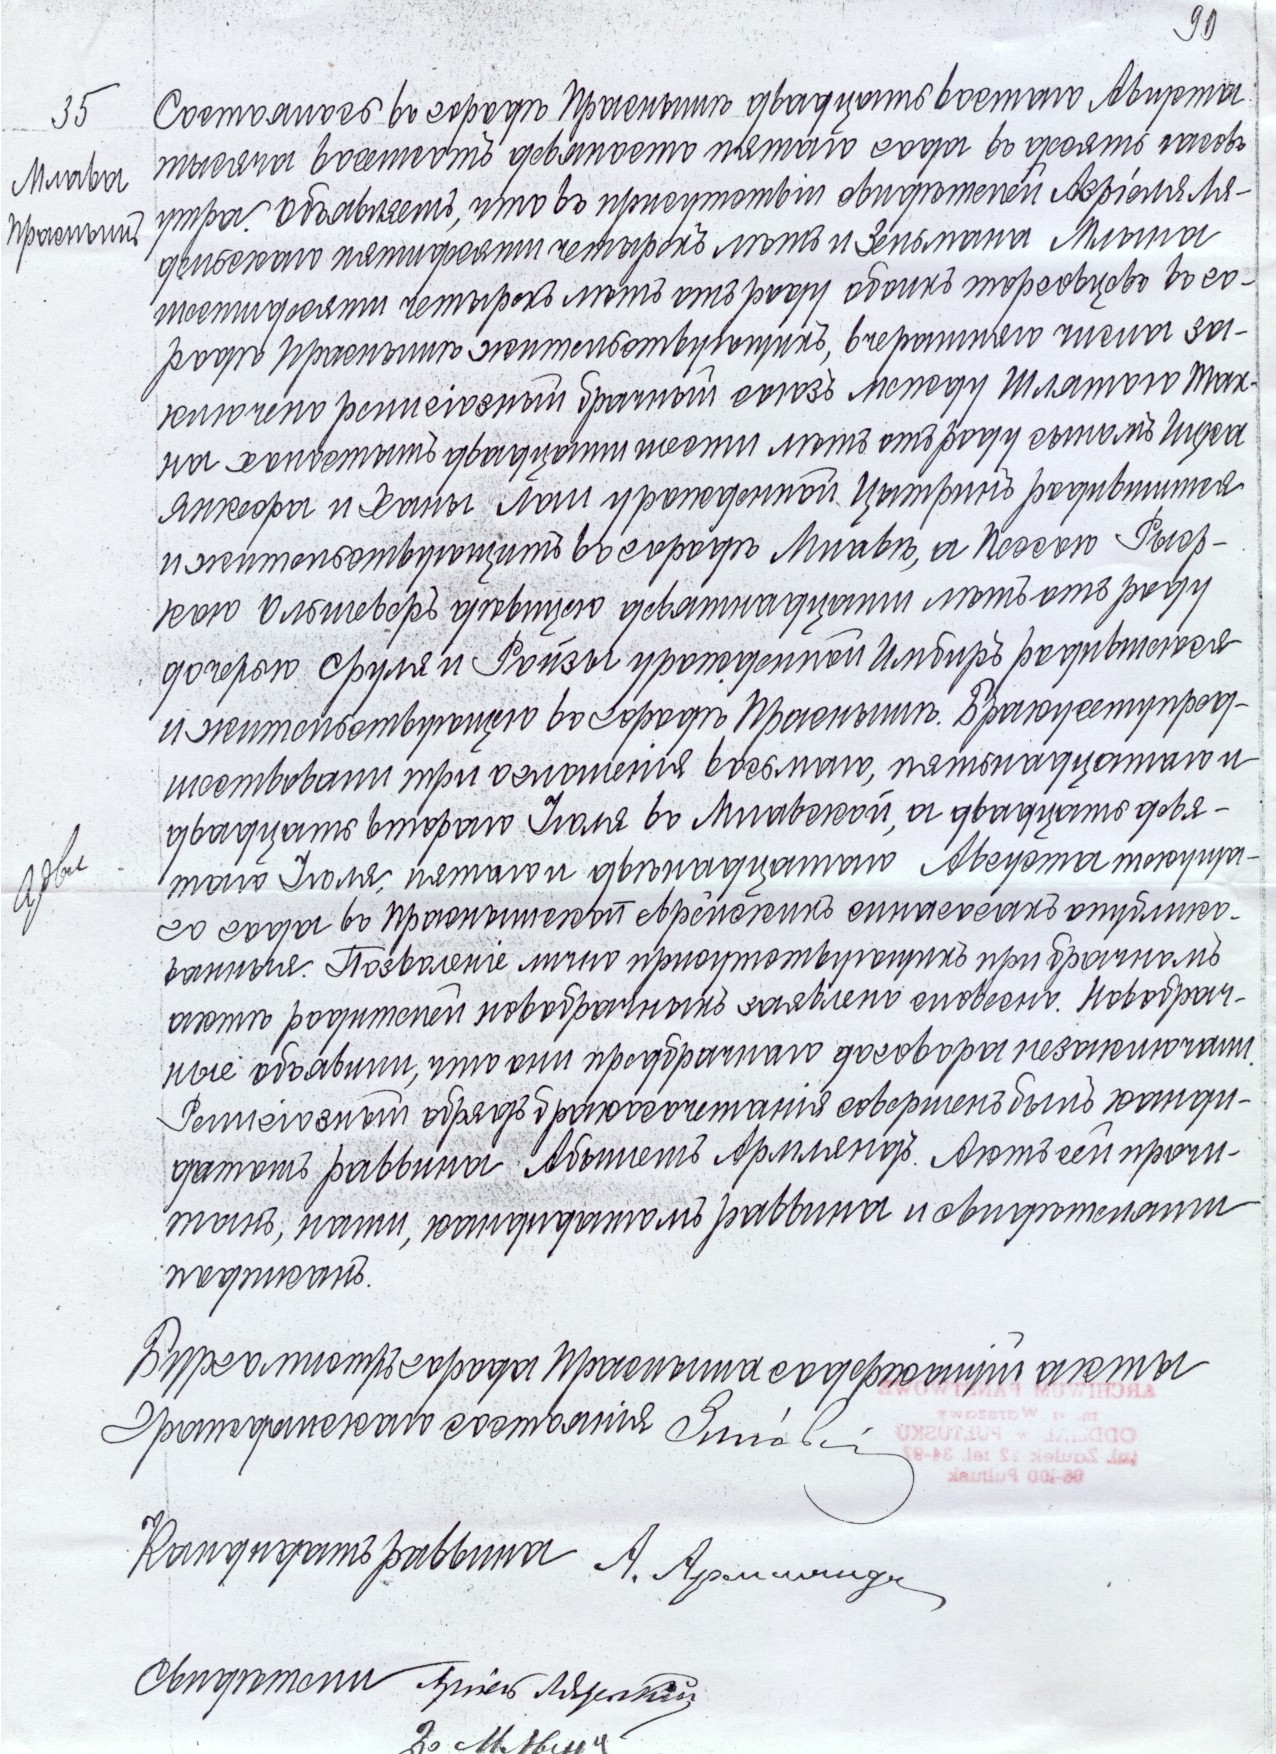 90
35
Млава
Праснышъ
Состоялось въ городѣ Праснышѣ двадцать восьмаго Августа
тысяча восемьсотъ девяносто пятаго года въ десять часовъ
утра. Объявляемъ, что въ присутствіи свидѣтелей Азріеля Ля-
дельскаго пятидесяти четырехъ лѣтъ и Зельмана Млына
шестидесяти четырехъ лѣтъ отъ роду обоихъ торговцевъ въ го-
родѣ Праснышѣ жительствующихъ, вчерашняго числа за-
ключено религіозный брачный союзъ между Шлямою Мак-
на холостымъ двадцати шести лѣтъ отъ роду сыномъ Ицка
Янкефа и Ханы Лаи урожденной Цитринъ родившимся
и жительствующимъ въ городѣ Млавѣ, а Песею Рыф-
кою Ольшеверъ дѣвицею девятнадцати лѣтъ отъ роду
дочерью Сруля и Ройзы урожденной Имбиръ родившеюся
и жительствующею въ городѣ Праснышѣ. Браку сему пред-
шествовали три оглашенія восьмаго, пятьнадцатаго и
двадцать втораго Іюля въ Млавской, а двадцать девя-
таго Іюля, пятаго и двѣнадцатаго Августа текуща-
го года въ Праснышской еврейскихъ синагогахъ опублико-
ванныя. Позволеніе лично присутствующихъ при брачномъ
актѣ родителей новобрачныхъ заявлено словесно. Новобрач-
ные объявили, что они предбрачнаго договора не заключали.
Религіозный обрядъ бракосочетанія совершенъ былъ канди-
датомъ раввина Абрамомъ Армляндъ. Актъ сей прочи-
танъ, нами, кандидатомъ раввина и свидѣтелями
подписанъ.
Бургомистръ города Прасныша содержащій акты
Гражданскаго состоянія
ARCHIWUM PAŃSTWOWE
m. st. Warszawy
ODDZIAŁ w PUŁTUSKU
06-100 Pułtusk
Кандидатъ раввина А. Армляндъ
Свидѣтели